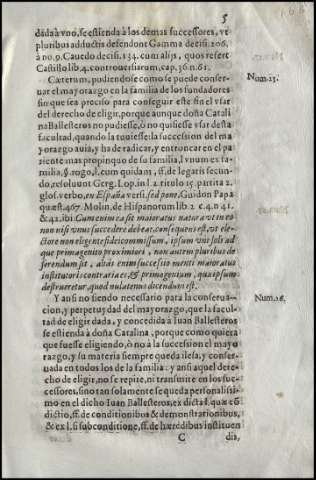 5
dida à vno, se estienda à los demas successores, vt
pluribus adductis defendont Gamma decis. 206.
à no. 9. Caucdo decis. 134. cum alijs, quos refert
Castillo lib. 4. controuersiarum, cap. 36. n. 61.
Cæterum, pudiendose como se puede conser-
uar el mayorazgo en la familia de los fundadores
sin que sea preciso para conseguir este fin el vsar
del derecho de eligir, porque aunque doña Catali
na Ballesteros no pudiesse, ò no quisiesse vsar desta
facultad, quando la tuuiesse: la succession del ma
yorazgo auia, y ha de radicar, y entroncar en el pa
riente mas propinquo de su familia, l. vnum ex fa-
milia, §. rogo, l. cum quidam, ff. de legatis secun-
do, resoluunt Greg. Lop. in l. 2. titulo 15. partita 2.
glos. verbo, en España vers. sed pone, Guidon Papa
quæst. 467. Molin. de Hispanorum lib. 2. c. 4. n. 41.
& 42. ibi: Cum enim ea sit maioratus natura vt in eo
non nisi vnus succedere debeat, consequens est, vt ele-
ctore non eligente fideicommissum, ipsum vni soli ad
que primogenito proximiori, non autem pluribus de
ferendum sit, aliàs enim successio menti maioratus
institutoris contraria est, & primogenium, qua ipsum
destrueretur, quod nullatenus dicendum est.
Y ansi no siendo necessario para la conserua-
cion, y perpetuydad del mayorazgo, que la facul-
tad de eligir dada, y concedida à Iuan Ballesteros
se estienda à doña Catalina, porque como quiera
que fuesse eligiendo, ò no à la succession el mayo
razgo, y su materia siempre queda ilesa, y conser-
uada en todos los de la familia: y ansi aquel dere-
cho de eligir, no se repite, ni transmite en los suc-
cessores, sino tan solamente se queda personalis-
simo en el dicho Iuan Ballesteros, ex dicta l. quæ cõ
dictio, ff. de conditionibus & demonstrationibus,
& ex l. si subconditione, ff. de hæredibus instituen
C dis,
Num. 15.
Num. 16.